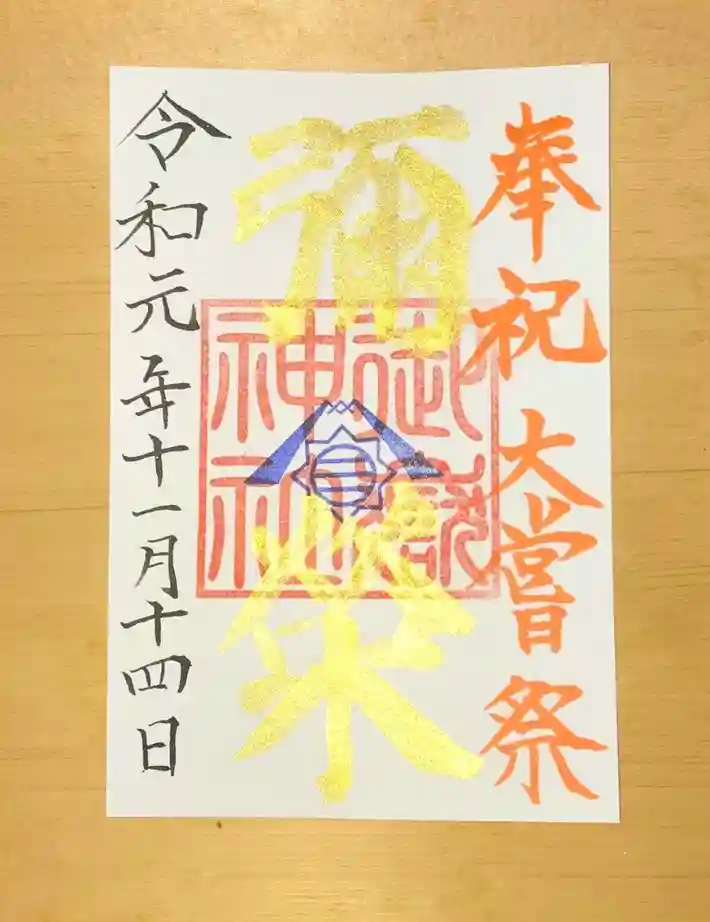 奉祝 大嘗祭
彌榮
御嶽神社
令和元年十一月十四日